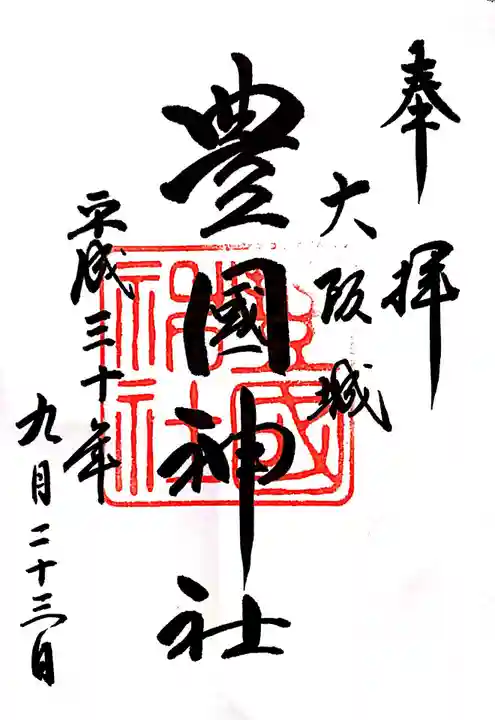 奉拝
大阪城
豊國神社
豊國神社
平成三十年
九月二十三日